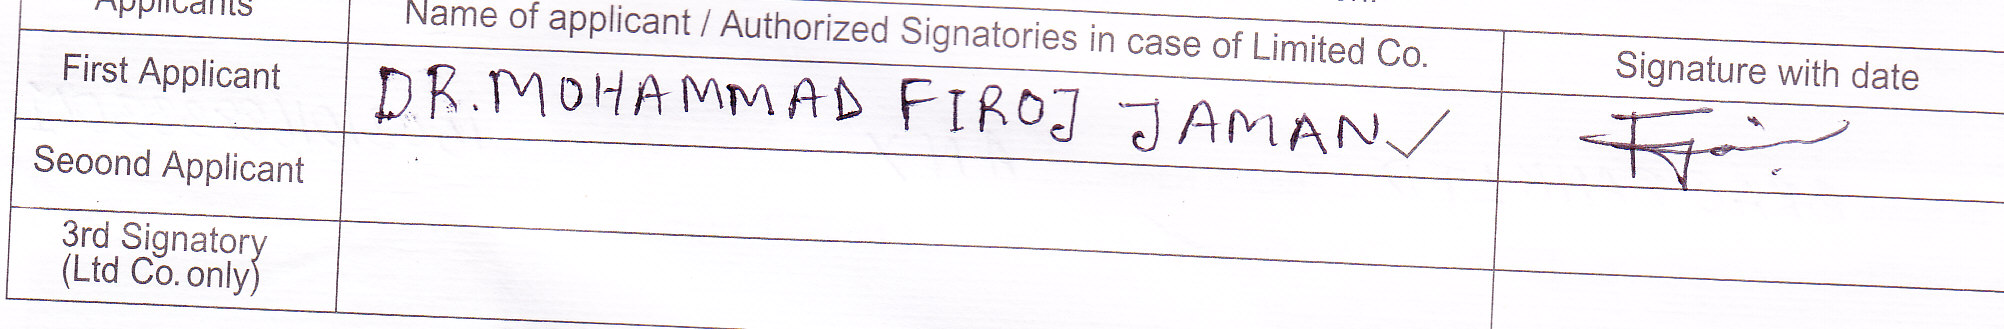 Applicants
Name of applicant / Authorized Signatories in case of Limited Co.
Signature with date
First Applicant
DR. MOHAMMAD FIROJ JAMAN ✓
Seoond Applicant
3rd Signatory
(Ltd Co. only)